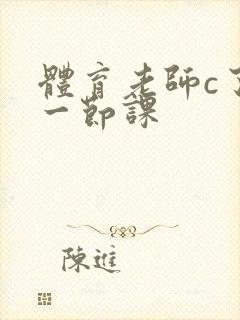 體育老師c了
一節課
陳進